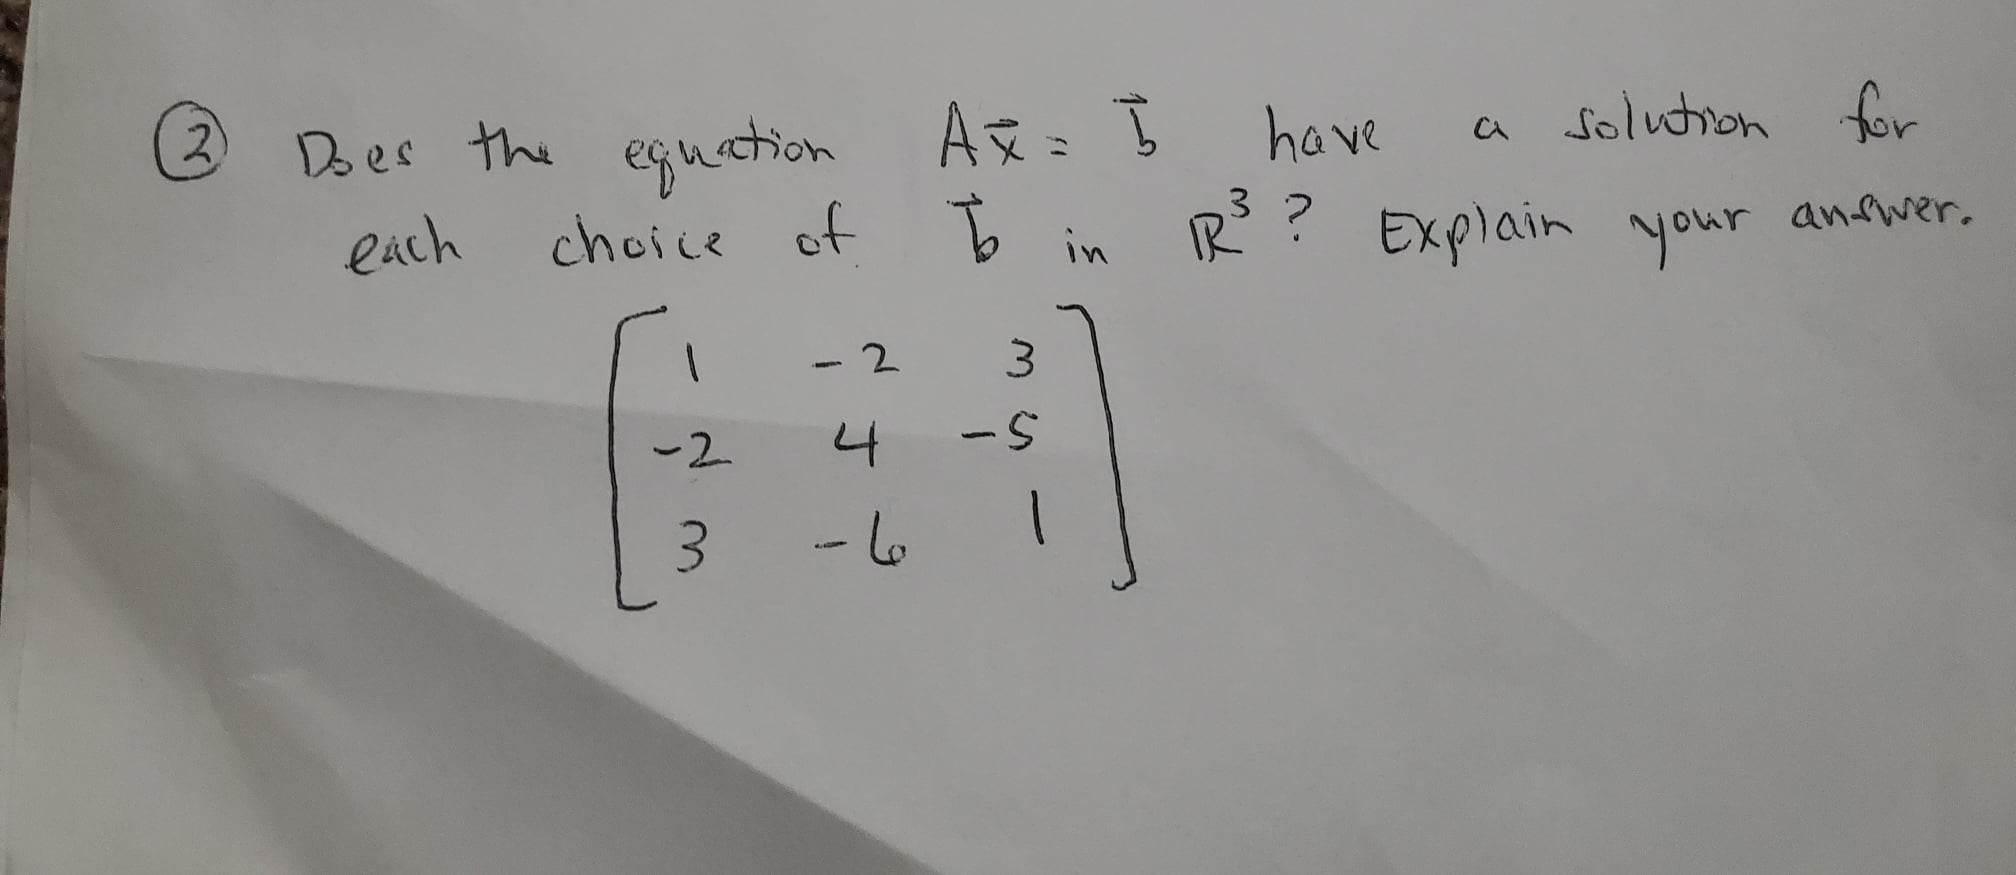 ② Does the equation Ax⃗ = b⃗ have a solution for
each choice of b⃗ in ℝ³? Explain your answer.
1 -2 3
-2 4 -5
3 -6 1